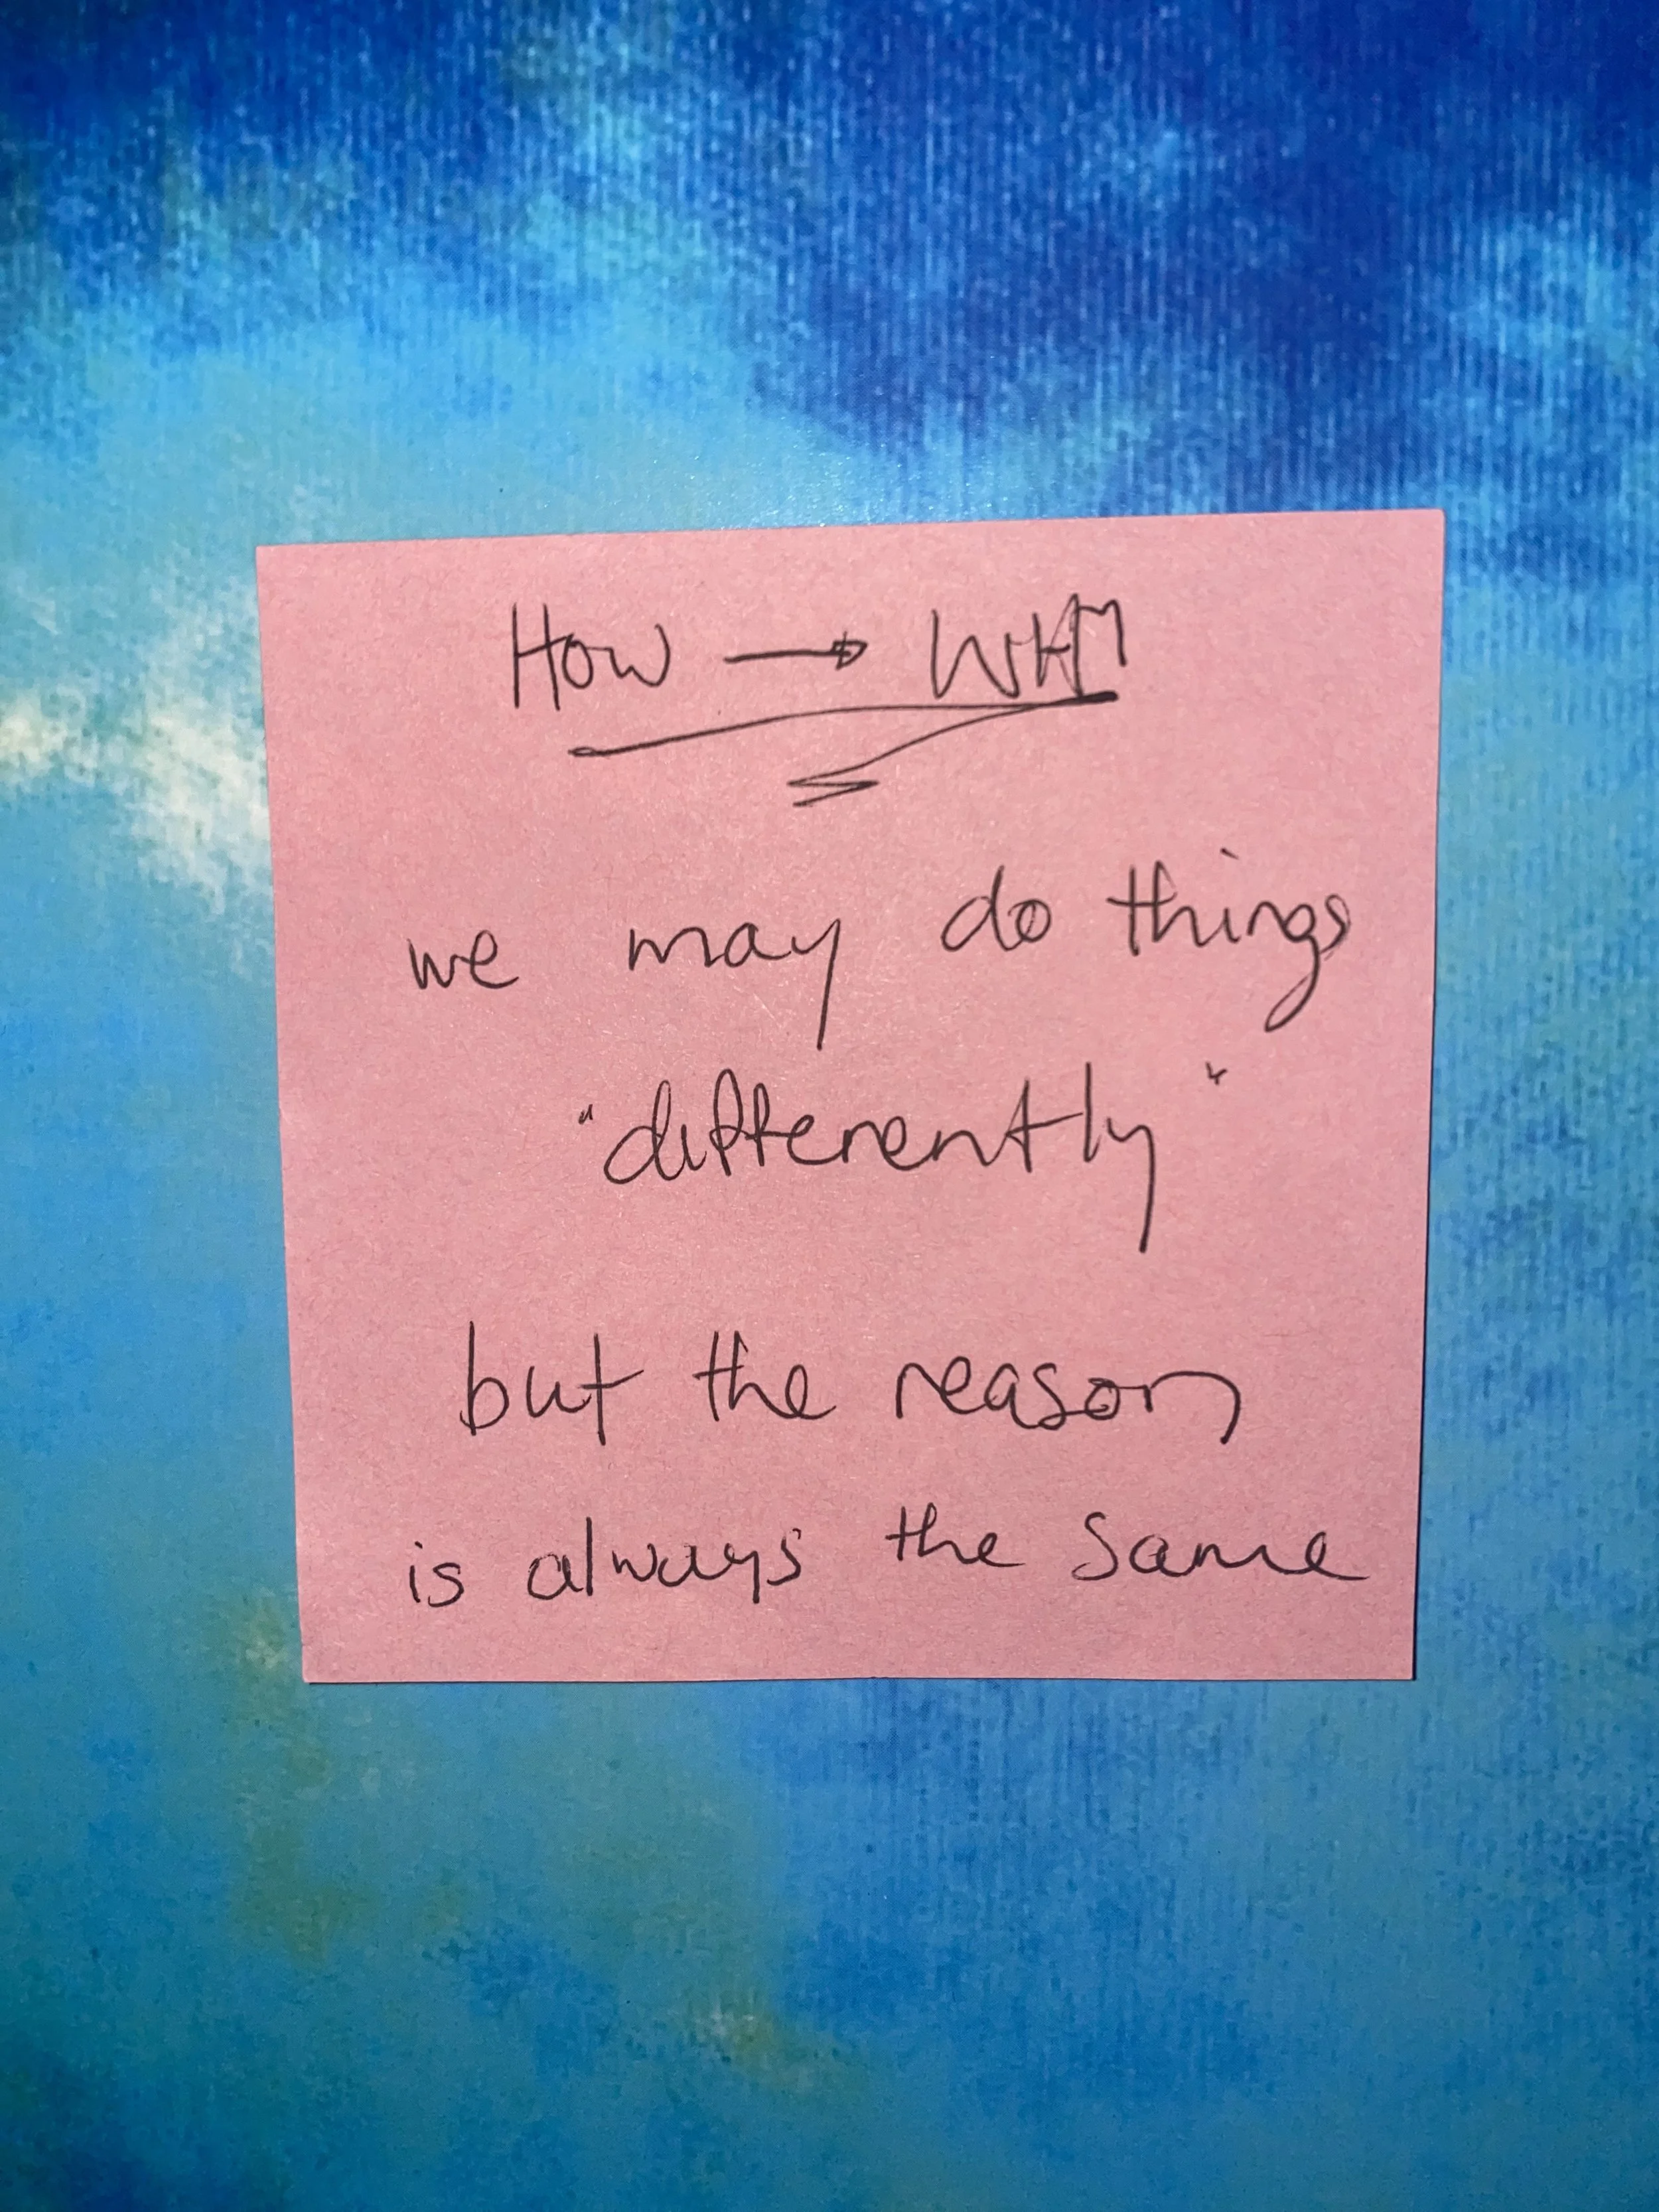 How → WHY
we may do things
"differently"
but the reason
is always the same